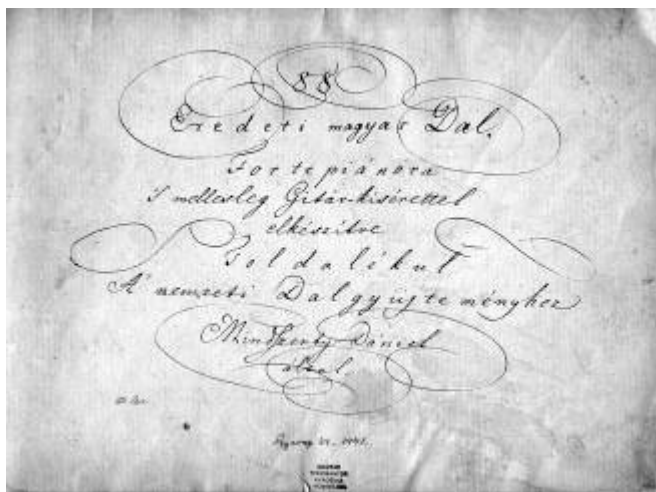 88
Eredeti magyar Dal.
Fortepiánóra
S mellesleg Gitár-kisérettel
elkészitve
Toldalékul
A' nemzeti Dalgyüjteményhez
Mindszenty Dániel
által.